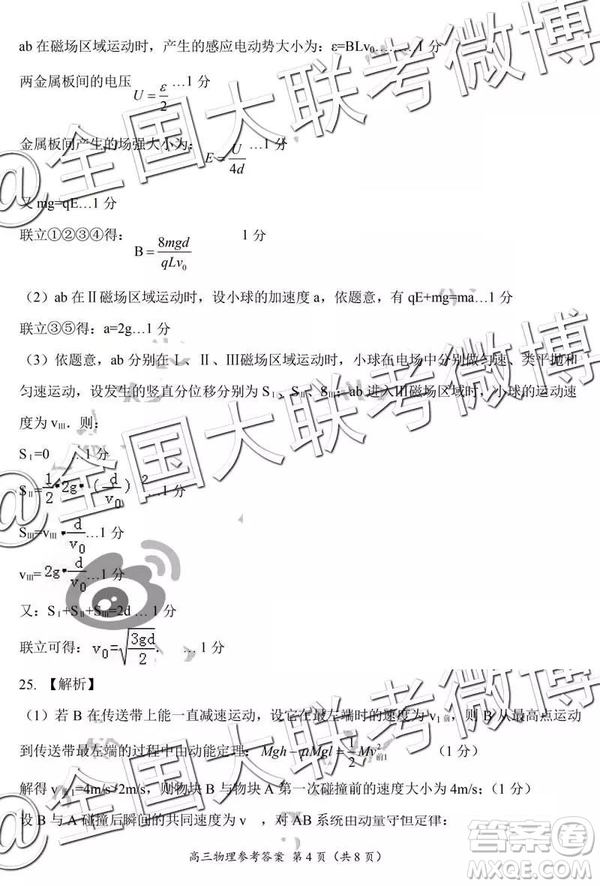 ab 在磁场区域运动时，产生的感应电动势大小为：ε=BLv₀……1 分
两金属板间的电压 U = ε/2 …1 分
金属板间产生的场强大小为： E = U/4d …1 分
又 mg=qE…1 分
联立①②③④得： B = 8mgd/qLv₀ 1 分
（2）ab 在Ⅱ磁场区域运动时，设小球的加速度 a，依题意，有 qE+mg=ma…1 分
联立③⑤得：a=2g…1 分
（3）依题意，ab 分别在Ⅰ、Ⅱ、Ⅲ磁场区域运动时，小球在电场中分别做匀速、类平抛和
匀速运动，设发生的竖直分位移分别为 SⅠ、SⅡ、SⅢ；ab 进入Ⅲ磁场区域时，小球的运动速
度为 vⅢ. 则：
SⅠ=0 …1 分
SⅡ=1/2•2g•(d/v₀)² …1 分
SⅢ=vⅢ•d/v₀…1 分
vⅢ=2g•d/v₀…1 分
又：SⅠ+SⅡ+SⅢ=2d…1 分
联立可得： v₀=√(3gd/2). …1 分
25. 【解析】
（1）若 B 在传送带上能一直减速运动，设它在最左端时的速度为 v₁前，则 B 从最高点运动
到传送带最左端的过程中由动能定理：Mgh−μMgl=1/2Mv²前1 （1 分）
解得 v 1=4m/s>2m/s，则物块 B 与物块 A 第一次碰撞前的速度为 4m/s；（1 分）
设 B 与 A 碰撞后瞬间的共同速度为 v ，对 AB 系统由动量守恒定律：
高三物理参考答案 第 4 页（共 8 页）
@全国大联考微博
@全国大联考微博
@全国大联考微博
答案圈
MXQE.COM